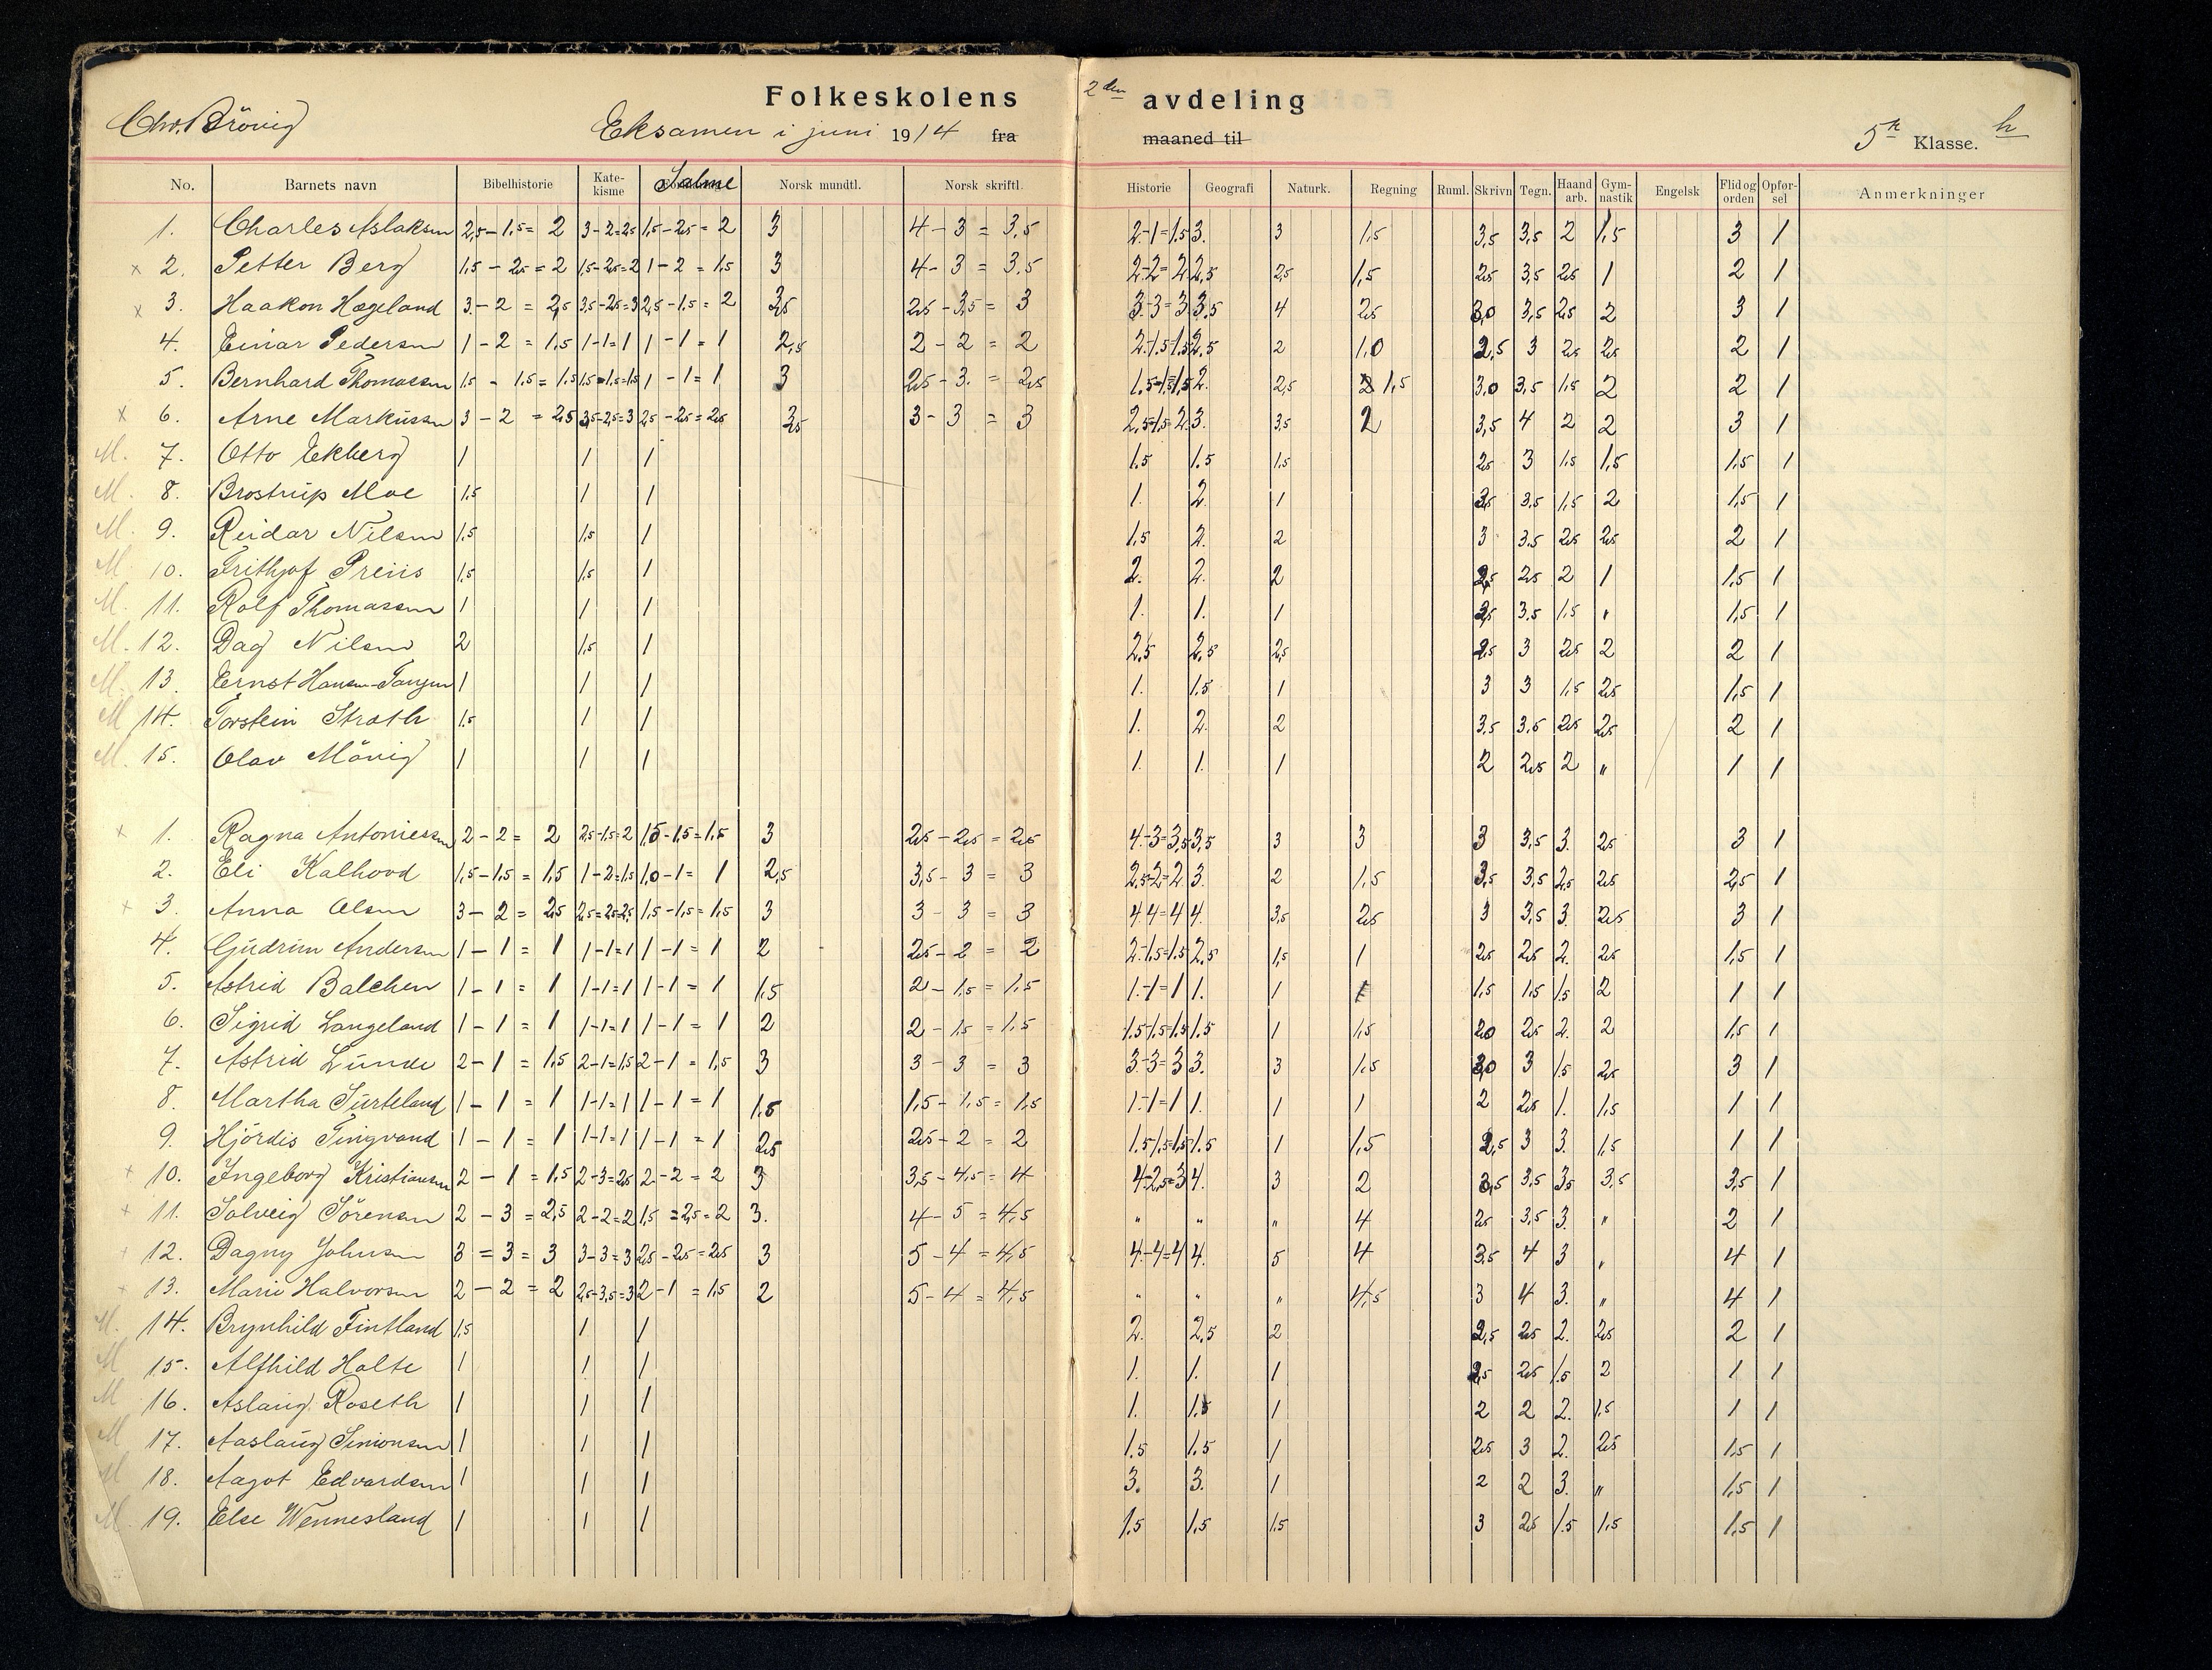 Folkeskolens 2den avdeling
Chr. Brövig Eksamen i juni 1914 fra maaned til 5te Klasse. h
No. Barnets navn Bibelhistorie Kate-kisme Salme Norsk mundtl. Norsk skriftl. Historie Geografi Naturk. Regning Ruml. Skrivn Tegn. Haand arb. Gym-nastik Engelsk Flid og orden Opfør-sel Anmerkninger
1. Charles Aslaksen 2,5 - 1,5 = 2 3 - 2 = 2,5 1,5 - 2,5 = 2 3 4 - 3 = 3,5 2. - 1 = 1,5 3. 3 1,5 3,5 3,5 2 1,5 3 1
x 2. Petter Berg 1,5 - 2,5 = 2 1,5 - 2,5 = 2 1 - 2 = 1,5 3 4 - 3 = 3,5 2. - 2 = 2 2,5 2,5 1,5 2,5 3,5 2,5 1 2 1
x 3. Haakon Hægeland 3. - 2 = 2,5 3,5 - 2,5 = 3 2,5 - 1,5 = 2 3,5 2,5 - 3,5 = 3 3. - 3 = 3 3.5 4 2,5 3,0 3,5 2,5 2 3 1
4. Einar Pedersen 1 - 2 = 1,5 1 - 1 = 1 1 - 1 = 1 2,5 2 - 2 = 2 2. - 1.5 = 1.5 2,5 2 1,0 2,5 3 2,5 2,5 2 1
5. Bernhard Thomassen 1,5 - 1,5 = 1,5 1,5 - 1,5 = 1,5 1 - 1 = 1 3 2,5 - 3. = 2,5 1.5 - 1.5 = 1,5 2. 2,5 1,5 3,0 3,5 1,5 2 2 1
x 6. Arne Markussen 3 - 2 = 2,5 3,5 - 2,5 = 3 2,5 - 2,5 = 2,5 3,5 3 - 3 = 3 2,5 - 1,5 = 2 3. 3,5 2 3,5 4 2 2 3 1
M. 7. Otto Ekberg 1 1 1 1.5 1.5 1,5 2,5 3 1,5 1,5 1,5 1
M. 8. Brostrup Moe 1,5 1 1 1. 2. 1 2,5 3,5 1,5 2 1,5 1
M. 9. Reidar Nilsen 1,5 1,5 1 1,5 2. 2 3 3,5 2,5 2,5 2 1
M. 10. Frithjof Preiis 1,5 1,5 1 2. 2. 2 2,5 2,5 2 1 1,5 1
M. 11. Rolf Thomassen 1 1 1 1. 1. 1 2,5 3.5 1,5 " 1,5 1
M. 12. Dag Nilsen 2 1,5 1 2,5 2,5 2,5 2,5 3 2,5 2 2 1
M. 13. Ernst Hansen-Tangen 1 1 1 1. 1.5 1 3 3 1,5 2,5 1,5 1
M 14. Torstein Stroth 1.5 1 1 1. 2. 2 3,5 3,5 2,5 2,5 2 1
M. 15. Olav Mönig 1 1 1 1. 1. 1 2 2,5 2 " 1 1
x 1. Ragna Antoniessen 2 - 2 = 2 2,5 - 1,5 = 2 1,5 - 1,5 = 1,5 3 2,5 - 2,5 = 2,5 4. - 3 = 3,5 3,5 3 3 3 3,5 3. 2,5 3 1
2. Eli Kalhovd 1,5 - 1,5 = 1,5 1 - 2 = 1,5 1,0 - 1 = 1 2,5 3,5 - 3 = 3 2,5 - 2 = 2 3. 2 1,5 3,5 3,5 2,5 2,5 2,5 1
x 3. Anna Olsen 3 - 2 = 2,5 2,5 = 2,5 = 2,5 1,5 - 1,5 = 1,5 3 3 - 3 = 3 4 4 = 4 4. 3,5 2,5 3 3,5 3. 2,5 3 1
4. Gudrun Andersen 1 - 1 = 1 1 - 1 = 1 1 - 1 = 1 2 2,5 - 2 = 2 2. - 1,5 = 1.5 2,5 1,5 1 2,5 2,5 2. 2,5 1,5 1
5. Astrid Balchen 1 - 1 = 1 1 - 1 = 1 1 - 1 = 1 1,5 2 - 1,5 = 1,5 1. - 1 = 1 1. 1 1 1,5 1,5 1.5 2 1 1
6. Sigrid Langeland 1 - 1 = 1 1 - 1 = 1 1 - 1 = 1 2 2 - 1,5 = 1,5 1.5 - 1,5 = 1,5 1.5 1 1,5 2,0 2,5 2. 2 1,5 1
7. Astrid Lunde 2 - 1 = 1,5 2 - 1 = 1,5 2 - 1 = 1,5 3 3 - 3 = 3 3. - 3 = 3 3. 3 1,5 3,0 3 1.5 2,5 3 1
8. Martha Surteland 1 - 1 = 1 1 - 1 = 1 1 - 1 = 1 1,5 1,5 - 1,5 = 1,5 1. - 1 = 1 1. 1 1 2 2,5 1. 1,5 1 1
9. Hjördis Tingvand 1 - 1 = 1 1 - 1 = 1 1 - 1 = 1 2,5 2,5 - 2 = 2 1.5 - 1,5 = 1,5 1.5 1 1,5 2,5 3 3. 1,5 1 1
x 10. Ingeborg Kristiansen 2 - 1 = 1,5 2 - 3 = 2,5 2 - 2 = 2 3 3,5 - 4,5 = 4 4 - 2,5 = 3 4. 3 2 3,5 3,5 3,5 3,5 3,5 1
x 11. Solveig Sörensen 2 - 3 = 2,5 2 - 2 = 2 1,5 = 2,5 = 2 3. 4 - 5 = 4,5 " " " 4 2,5 3,5 3. " 2 1
x 12. Dagny Johnsen 3 = 3 = 3 3 - 3 = 3 2,5 - 2,5 = 2,5 3 5 - 4 = 4,5 4. - 4 = 4 4. 5 4 3,5 4 3 " 4 1
x 13. Marie Halvorsen 2 - 2 = 2 2,5 - 3,5 = 3 2 - 1 = 1,5 2 5 - 4 = 4,5 " " " 4,5 3 4 3. " 4 1
M. 14. Brynhild Fintland 1,5 1 1 2. 2,5 2 2,5 2,5 2. 2,5 2 1
M 15. Alfhild Holte 1 1 1 1. 1. 1 2,5 2,5 1.5 2 1 1
M 16. Aslaug Roseth 1 1 1 1. 1.5 1 2 2 2. 1,5 1 1
M 17. Aaslaug Simonsen 1 1 1 1.5 1.5 1 2,5 3 2. 2,5 1,5 1
M 18. Aagot Edvardsen 1 1 1 3. 3. 1 2 2 3. " 1,5 1
M. 19. Else Wennesland 1 1 1 1,5 1,5 1,5 3 2,5 1.5 1,5 1,5 1